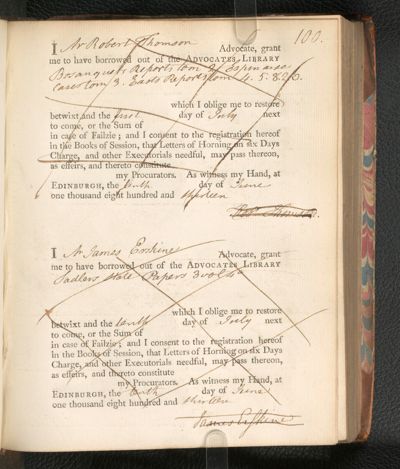 100.
I Mr Robert Thomson Advocate, grant
me to have borrowed out of the ADVOCATES LIBRARY
Bosanquets Reports tom 2.
cases tom 3. Easts Reports tom 4. 5. 8 &
which I oblige me to restore
betwixt and the first day of July next
to come, or the Sum of
in case of Failzie; and I consent to the registration hereof
in the Books of Session, that Letters of Horning on six Days
Charge, and other Executorials needful, may pass thereon,
as effeirs, and thereto constitute
my Procurators. As witness my Hand, at
EDINBURGH, the tenth day of June
one thousand eight hundred and thirteen
Robt Thomson.
I Mr James Erskine Advocate, grant
me to have borrowed out of the ADVOCATES LIBRARY
Sadlers State Papers 3 vol 4to
which I oblige me to restore
betwixt and the tenth day of July next
to come, or the Sum of
in case of Failzie; and I consent to the registration hereof
in the Books of Session, that Letters of Horning on six Days
Charge, and other Executorials needful, may pass thereon,
as effeirs, and thereto constitute
my Procurators. As witness my Hand, at
EDINBURGH, the tenth day of June
one thousand eight hundred and thirteen
James Erskine